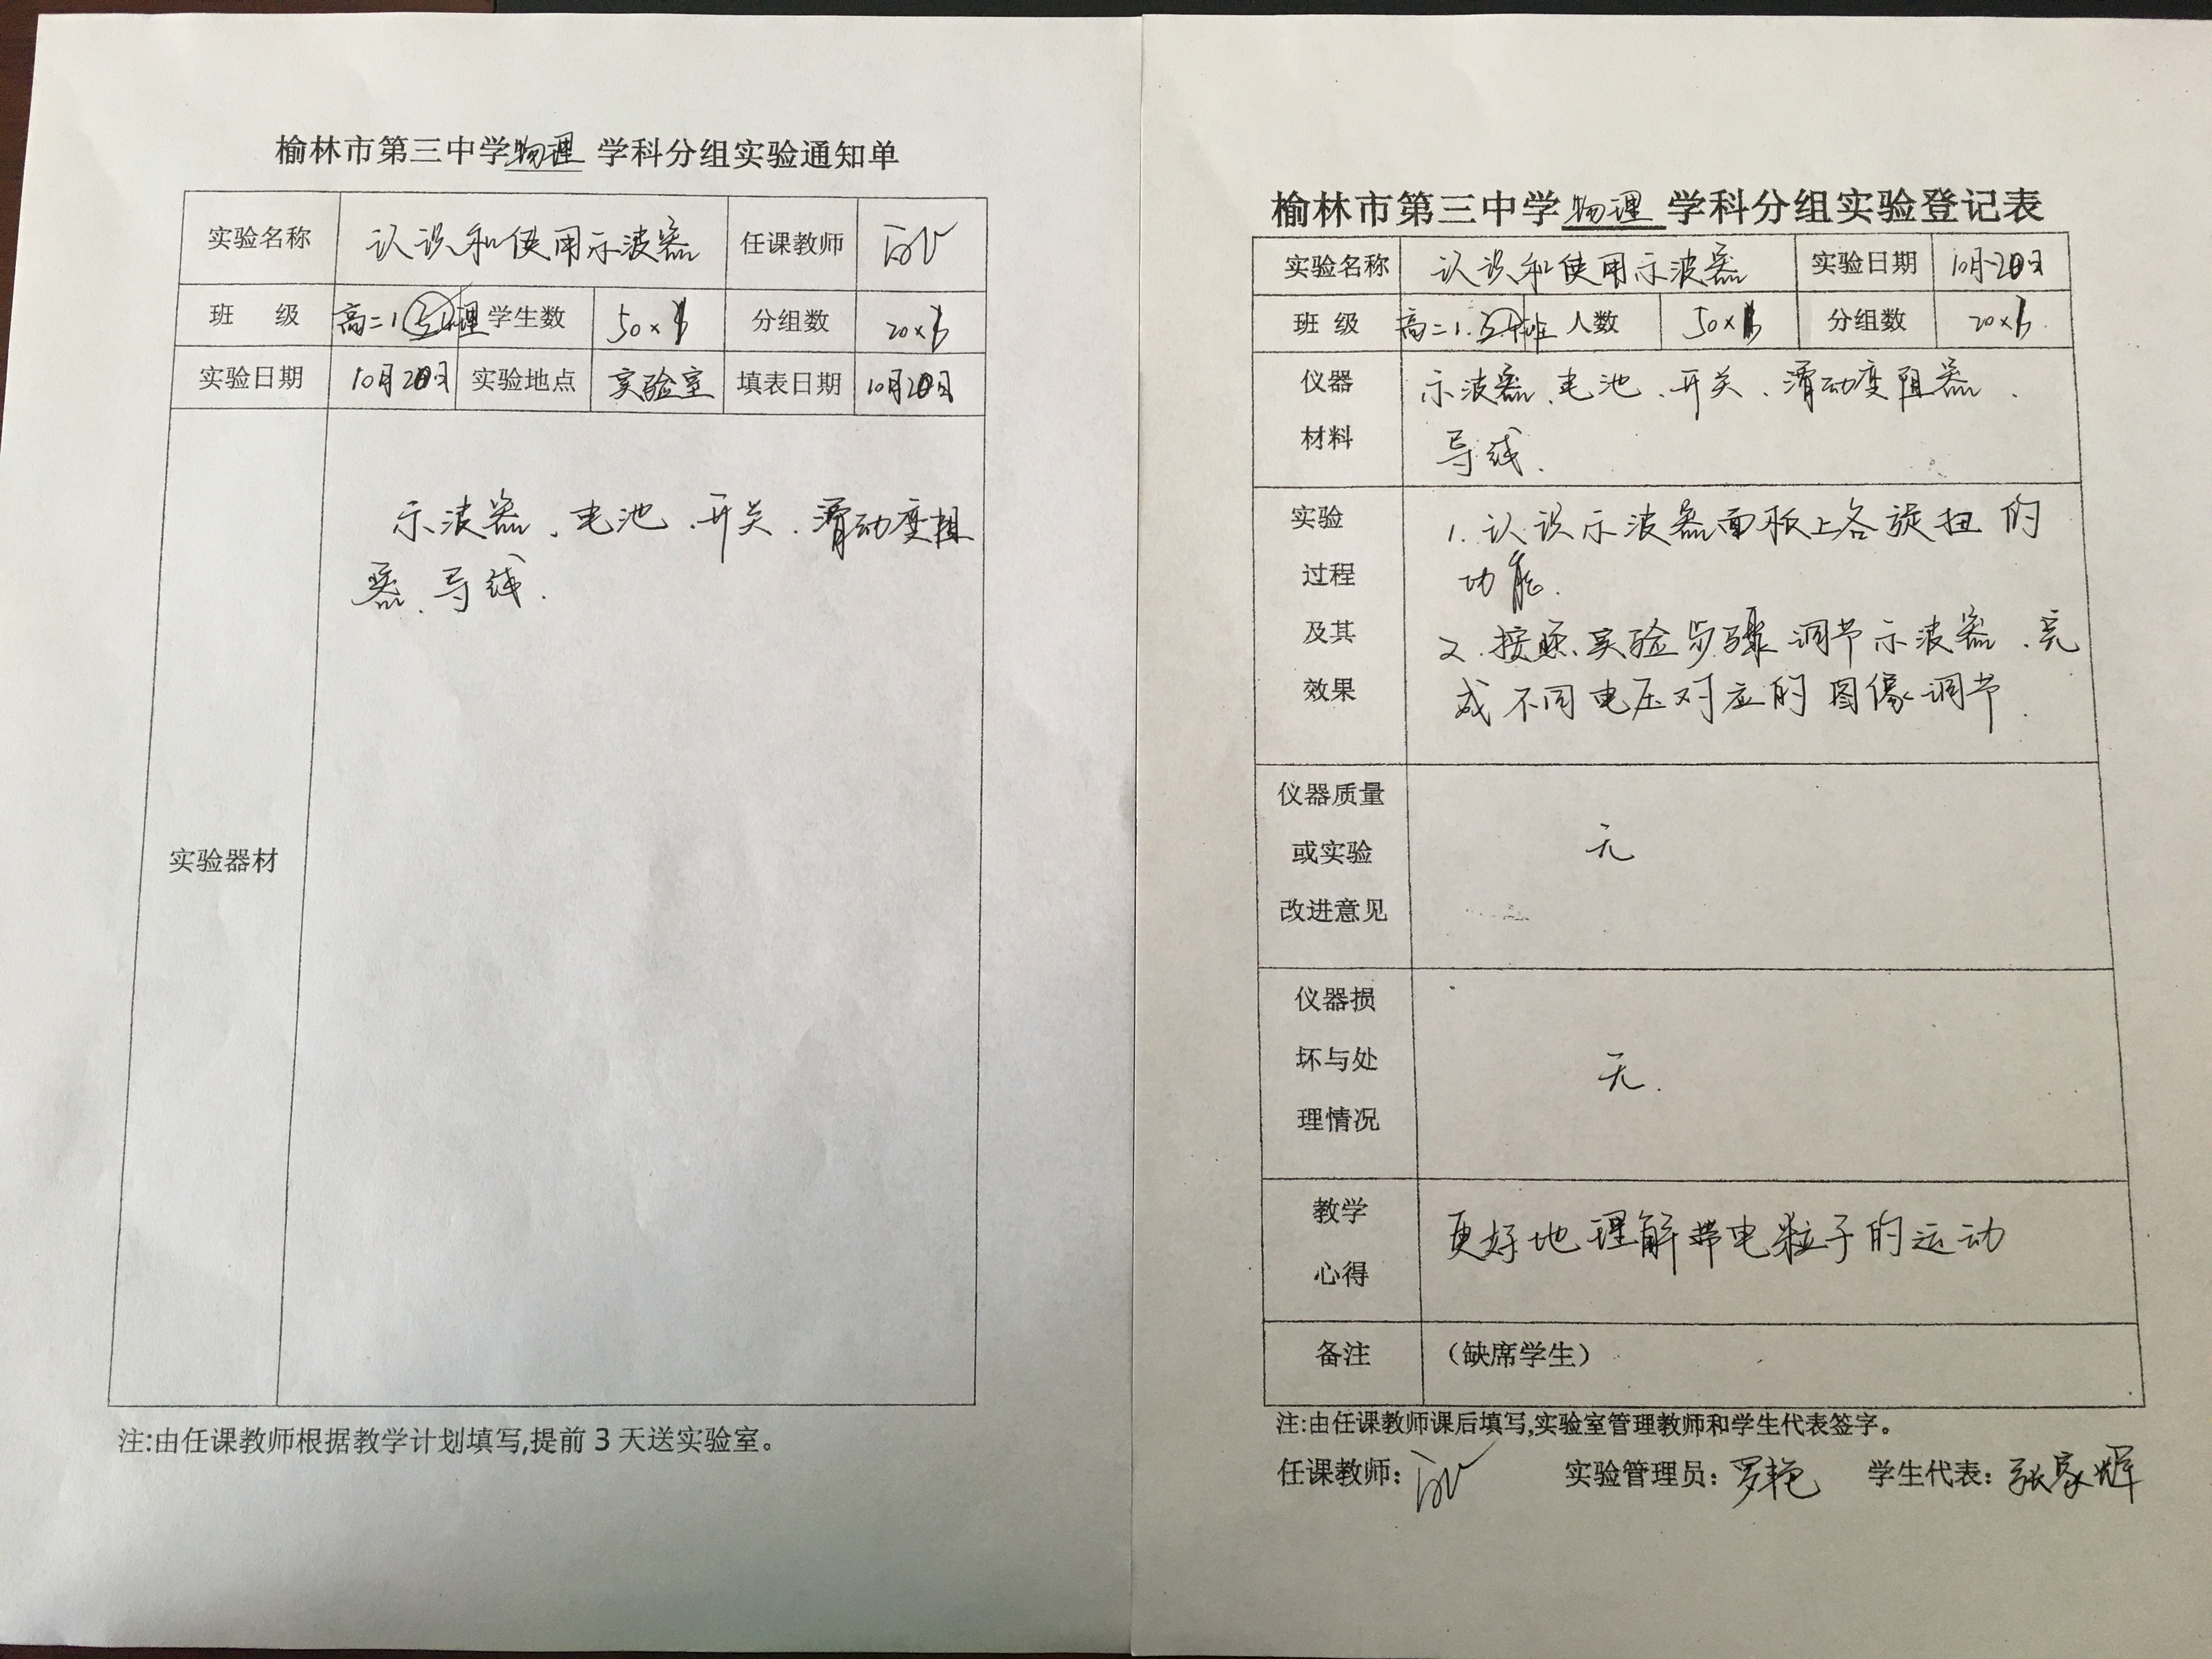 榆林市第三中学物理 学科分组实验通知单
实验名称 认识和使用示波器 任课教师
班 级 高二1 学生数 50× 分组数 20×
实验日期 10月20日 实验地点 实验室 填表日期 10月20日
实验器材
示波器、电池、开关、滑动变阻
器、导线.
注:由任课教师根据教学计划填写,提前 3 天送实验室。
榆林市第三中学物理 学科分组实验登记表
实验名称 认识和使用示波器 实验日期 10月20日
班 级 高二1. 人数 50× 分组数 20×
仪器 示波器、电池、开关、滑动变阻器、
材料 导线.
实验 1. 认识示波器面板上各旋扭的
过程 功能.
及其 2. 按照实验步骤调节示波器、完
效果 成不同电压对应的图像调节.
仪器质量
或实验 无
改进意见
仪器损
坏与处 无.
理情况
教学 更好地理解带电粒子的运动
心得
备注 （缺席学生）
注:由任课教师课后填写,实验室管理教师和学生代表签字。
任课教师: 实验管理员: 罗艳 学生代表: 张家辉